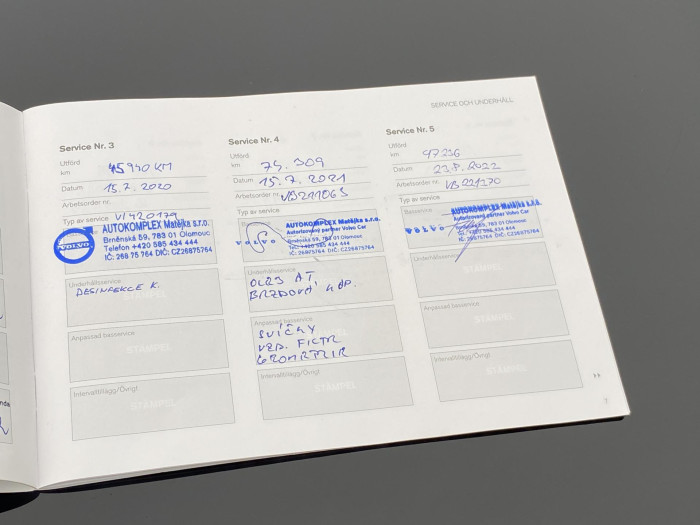 SERVICE OCH UNDERHÅLL
Service Nr. 3
Utförd
km 45940 KM
Datum 15.7.2020
Arbetsorder nr.
Typ av service VI420179
VOLVO
AUTOKOMPLEX Matějka s.r.o.
Brněnská 59, 783 01 Olomouc
Telefon +420 585 434 444
IČ: 268 75 764 DIČ: CZ26875764
Underhållsservice
DESINFEKCE K.
Anpassad basservice
STÄMPEL
Intervalltillägg/Övrigt
STÄMPEL
Service Nr. 4
Utförd
km 74.309
Datum 15.7.2021
Arbetsorder nr. VB211065
Typ av service
VOLVO
AUTOKOMPLEX Matějka s.r.o.
Autorizovaný partner Volvo Car
Brněnská 59, 783 01 Olomouc
Tel.: +420 585 434 444
IČ: 26875764 DIČ: CZ26875764
Underhållsservice
OLEJ AT
BRZDOVÁ KAP.
Anpassad basservice
SVÍČKY
VZD. FILTR
GEOMETRIE
Intervalltillägg/Övrigt
STÄMPEL
Service Nr. 5
Utförd
km 97236
Datum 23.8.2022
Arbetsorder nr. VB221270
Typ av service
Basservice
VOLVO
AUTOKOMPLEX Matějka s.r.o.
Autorizovaný partner Volvo Car
Brněnská 59, 783 01 Olomouc
Tel.: +420 585 434 444
IČ: 26875764 DIČ: CZ26875764
Underhållsservice
Anpassad basservice
STÄMPEL
Intervalltillägg/Övrigt
STÄMPEL
7